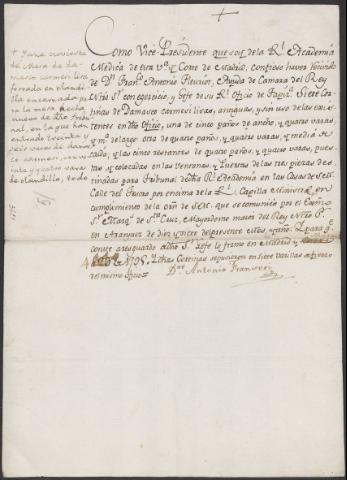 Como Vice-Presidente que soy de la Rl. Academia
Medica de esta Va. y Corte de Madrid, confieso haver recivido
de Dn. Franco. Antonio Fleuriot, Ayuda de Camara del Rey
Ntro. Sr. con exercicio, y Gefe de su Rl. Oficio de Tapia. Siete Cor-
tinas de Damasco carmesi lisas, antiguas, y sin uso de las exis-
tentes en dho. Oficio, una de cinco paños de ancho, y quatro varas
y ma. de largo: otra de quatro paños, y quatro varas, y media
y las cinco restantes de quatro paños, y quatro varas, pues-
tas y colocadas en las ventanas y Puertas de las tres piezas des-
tinadas para Tribunal dha. Rl. Academia en las Casas de
Calle del Tesoro por encima de la Rl. Capilla Ministerial en
cumplimiento de la orn. de S.M. que se comunicó por el Exmo.
Sr. Marqs. de Sta. Cruz, Mayordomo mayor del Rey Ntro. Sr.
en Aranjuez de diez y siete del presente mes, y año. Y para q.
conste a resguardo dho. Sr. Gefe lo firmo en Madrid y
de 1795. Y dhas. Cortinas se pusieron en siete varillas de fierro
del mismo oficio
Dor. Antonio Franseri
+ y una cuvierta
de Mesa de Da-
masco carmesi lisa
forrada en oland-
lla encarnada pa-
ra la mesa fecha
nueva de dho. tribu-
nal, en la que han
entrado treinta y
seis varas de damas-
co carmesi, con
y quatro varas
de olandilla, todo
1795